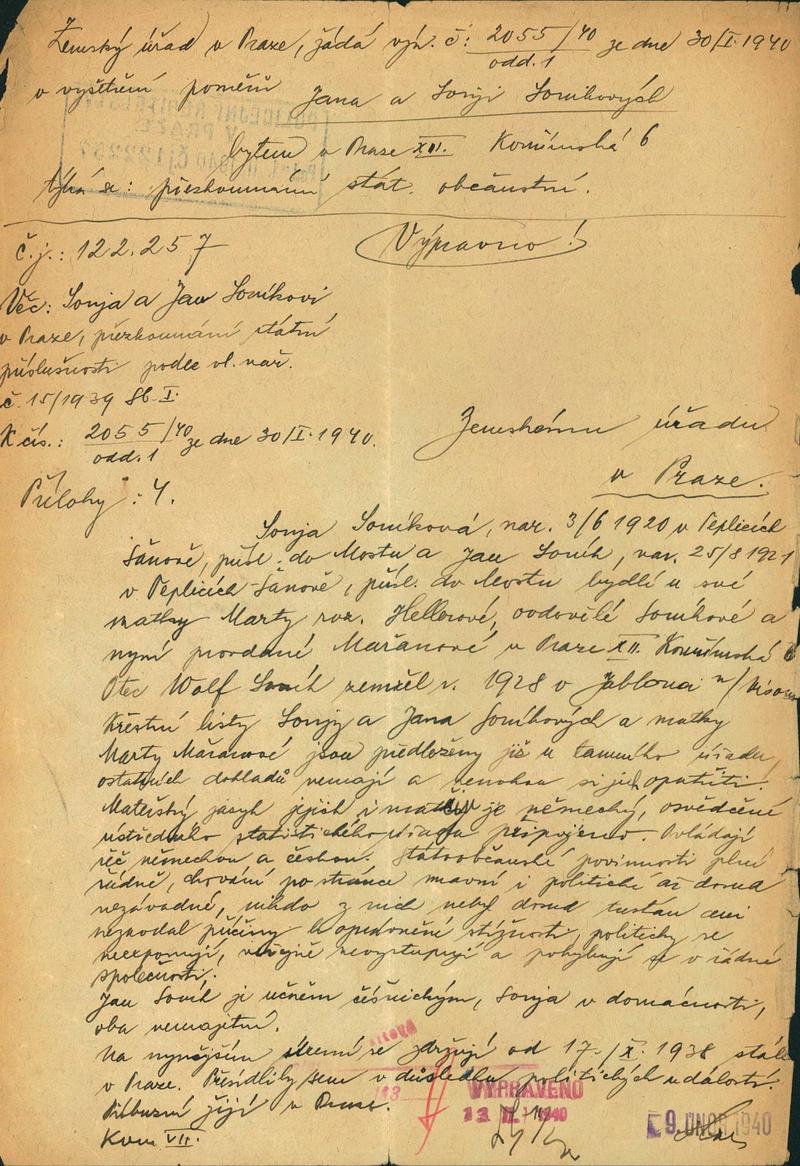 Zemský úřad v Praze, žádá výn. č: 2055/40 odd. 1 ze dne 30/I. 1940
o vyšetření poměrů Jana a Sonji
bytem v Praze XII. Kouřimská 6
týká se: přezkoumání stát. občanství.
Č.j.: 122.257
Výpravno!
Věc: Sonja a Jan
v Praze, přezkoumání státní
příslušnosti podle vl. nař.
č. 15/1939 Sb. I.
K čís.: 2055/40 odd. 1 ze dne 30/I. 1940.
Zemskému úřadu
v Praze.
Přílohy: 4.
Sonja nar. 3/6 1920 v Teplicích
Šanově, přísl. do Mostu a Jan nar. 25/8 1921
v Teplicích-Šanově, přísl. do Mostu bydlí u své
matky Marty roz. Hellerové, ovdovělé a
nyní provdané Mařanové v Praze XII. Kouřimská 6
Otec Wolf zemřel r. 1928 v Jablonci n/
Křestní listy Sonji a Jana a matky
Marty Mařanové jsou předloženy již u tamního úřadu,
ostatních dokladů nemají a nemohou si jich opatřiti.
Mateřský jazyk jejich i matky je německý, osvědčení
ústředního statistického úřadu připojeno. Ovládají
řeč německou a českou. Státoobčanské povinnosti plní
řádně, chování po stránce mravní i politické až dosud
nezávadné, nikdo z nich nebyl dosud trestán ani
nezavdal příčiny k oprávnění stížnosti, politicky se
neexponují, veřejně nevystupují a pohybují se v řádné
společnosti.
Jan je učněm číšnickým, Sonja v domácnosti,
oba nemajetní.
Na nynějším území se zdržují od 17./X. 1938 stále
v Praze. Přesídlily sem v důsledku politických událostí.
Příbuzní žijí v Praze.
VYPRAVENO
13. II. 1940
9. ÚNOR 1940
Kom VII.